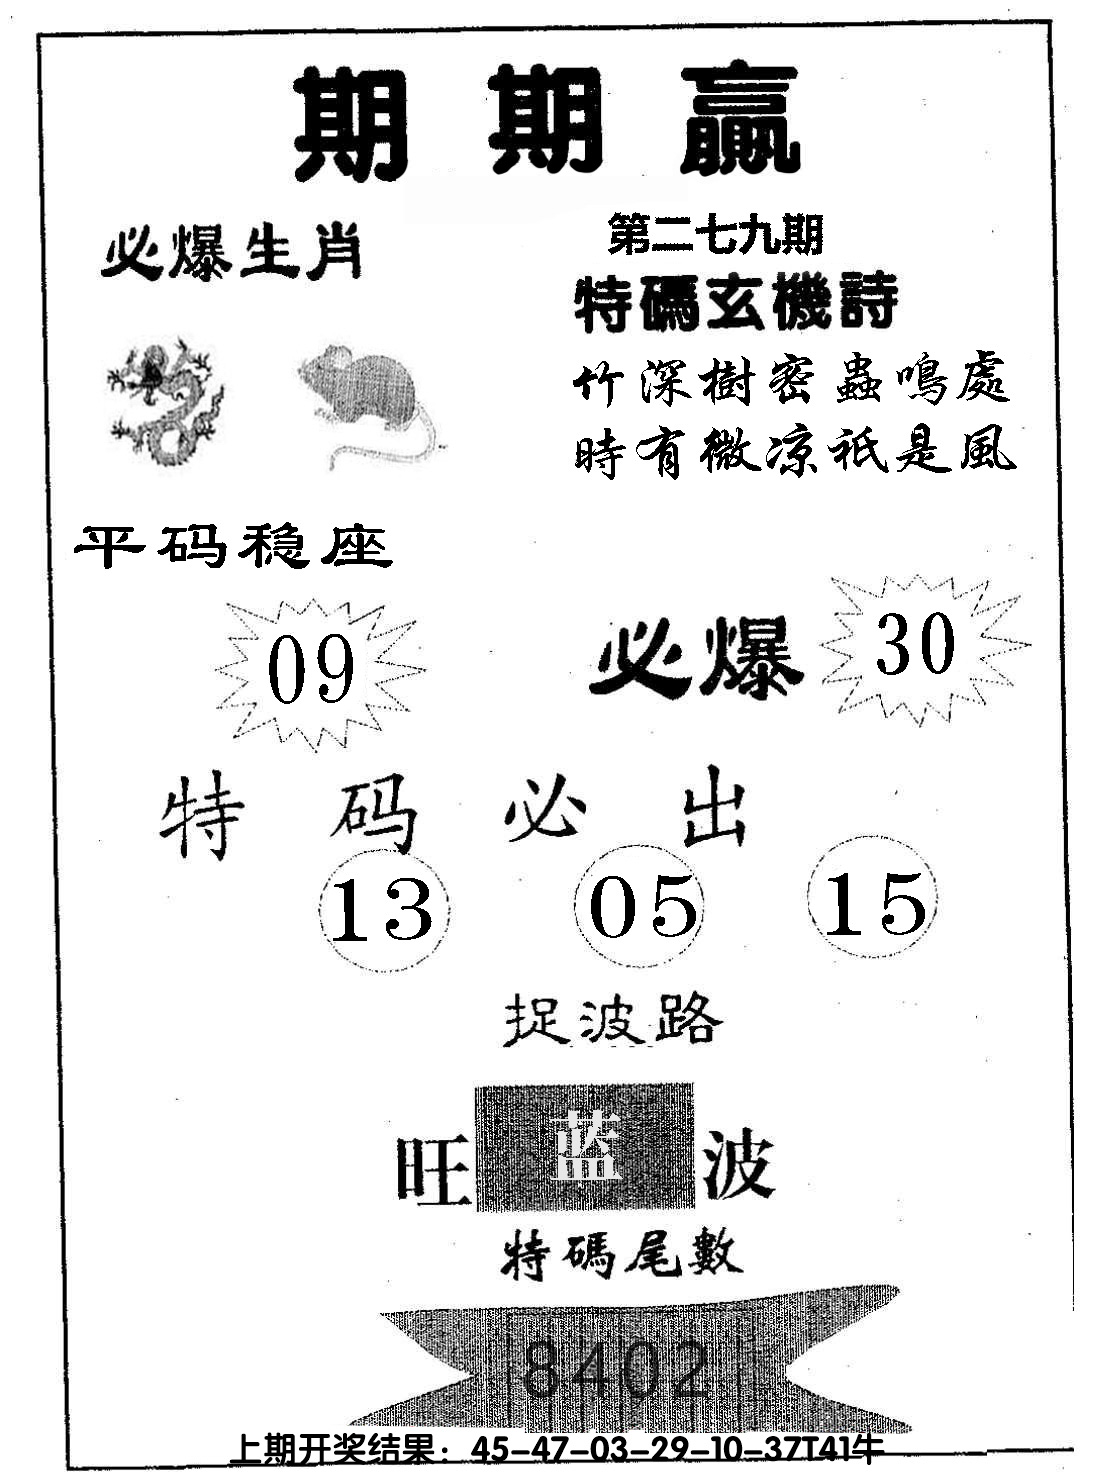 期期贏
第二七九期
必爆生肖
特碼玄機詩
竹深樹密蟲鳴處
時有微凉祇是風
平码稳座
09
必爆
30
特码必出
13 05 15
捉波路
旺 蓝 波
特碼尾數
8402
上期开奖结果：45-47-03-29-10-37T41牛